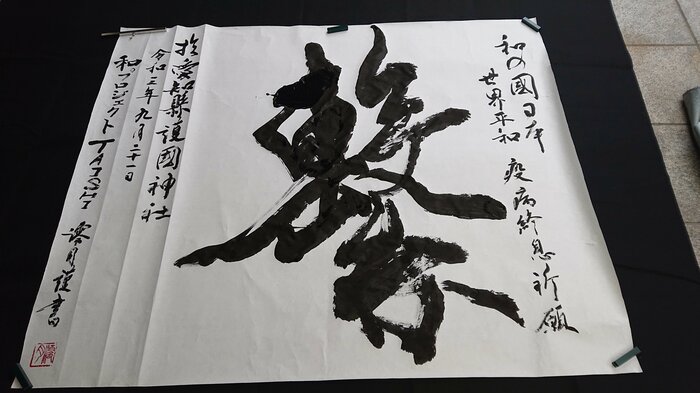 和の國日本
世界平和 疫病終息祈願
繋
於愛知縣護國神社
令和三年九月二十一日
和プロジェクト TAISHI 書